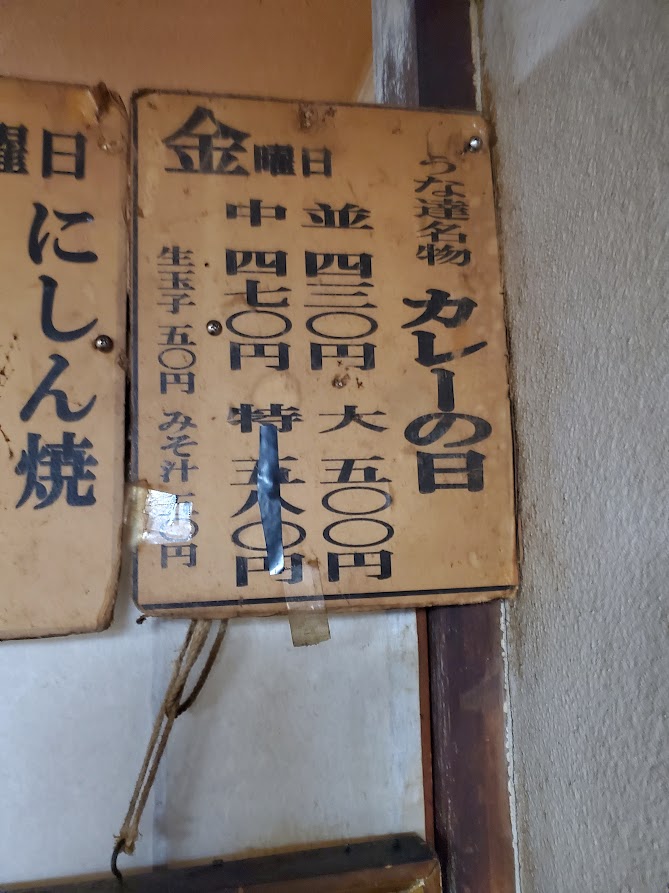 金曜日
うな達名物 カレーの日
並 四三〇円 大 五〇〇円
中 四七〇円 特 五八〇円
生玉子 五〇円 みそ汁 〇円
曜日
にしん焼